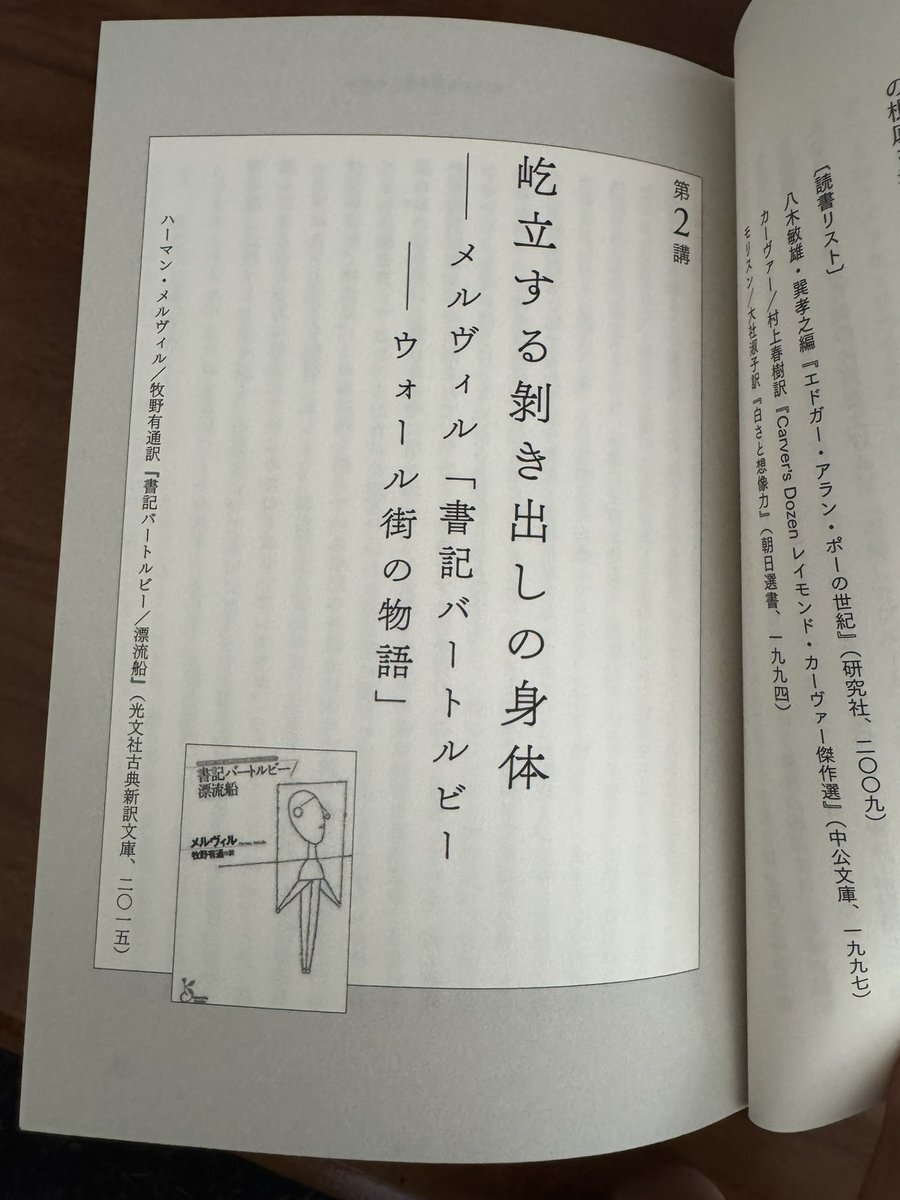 〔読書リスト〕
八木敏雄・巽孝之編『エドガー・アラン・ポーの世紀』（研究社、二〇〇九）
カーヴァー／村上春樹訳『Carver's Dozen レイモンド・カーヴァー傑作選』（中公文庫、一九九七）
モリスン／大社淑子訳『白さと想像力』（朝日選書、一九九四）
第2講
屹立する剝き出しの身体
――メルヴィル「書記バートルビー
――ウォール街の物語」
ハーマン・メルヴィル／牧野有通訳『書記バートルビー／漂流船』（光文社古典新訳文庫、二〇一五）
書記バートルビー/
漂流船
メルヴィル
牧野有通・訳